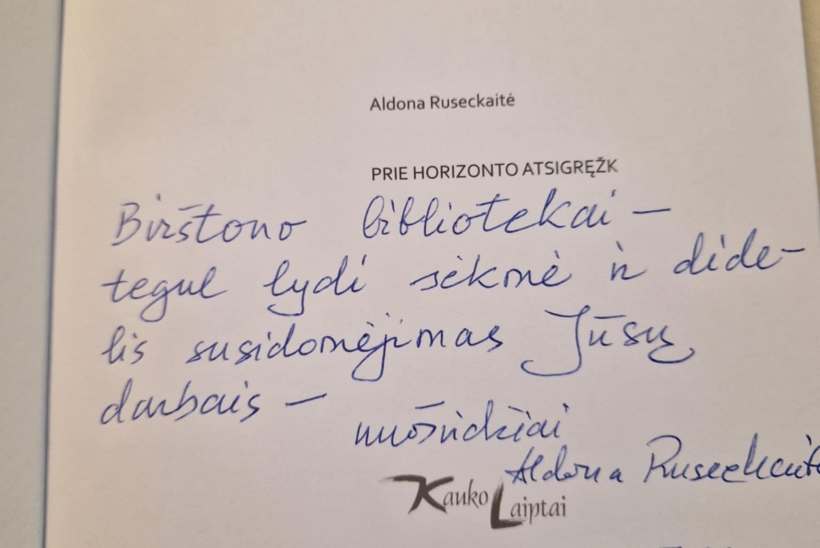 Aldona Ruseckaitė
PRIE HORIZONTO ATSIGRĘŽK
Birštono bibliotekai –
tegul lydi sėkmė ir dide-
lis susidomėjimas Jūsų
darbais –
nuoširdžiai
Aldona Ruseckaitė
Kauko Laiptai